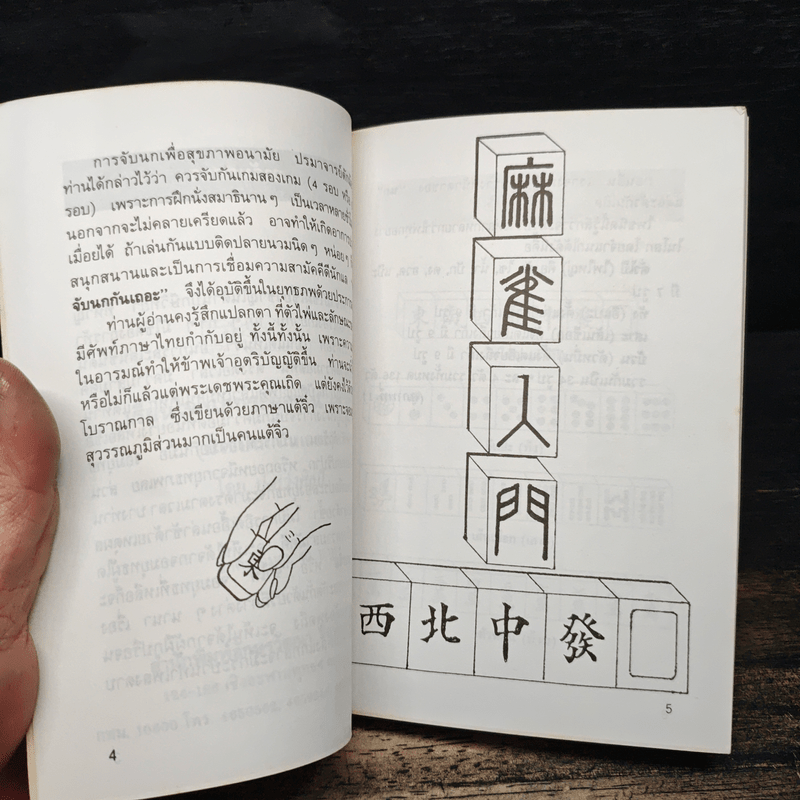 การจับนกเพื่อสุขภาพอนามัย ปรมาจารย์
ท่านได้กล่าวไว้ว่า ควรจับกันเกมสองเกม (4 รอบ
รอบ) เพราะการฝึกนั่งสมาธินานๆ เป็นเวลาหลาย
นอกจากจะไม่คลายเครียดแล้ว อาจทำให้เกิดอาการ
เมื่อยได้ ถ้าเล่นกันแบบติดปลายนวมนิดๆ หน่อยๆ
สนุกสนานและเป็นการเชื่อมความสามัคคีดีนักแล
จับนกกันเถอะ" จึงได้อุบัติขึ้นในยุทธภพด้วยประการ
ท่านผู้อ่านคงรู้สึกแปลกตา ที่ตัวไพ่และลักษณะ
มีศัพท์ภาษาไทยกำกับอยู่ ทั้งนี้ทั้งนั้น เพราะความ
ในอารมณ์ทำให้ข้าพเจ้าอุตริบัญญัติขึ้น ท่านจะ
หรือไม่ก็แล้วแต่พระเดชพระคุณเถิด แต่ยังคงไว้
โบราณกาล ซึ่งเขียนด้วยภาษาแต้จิ๋ว เพราะ
สุวรรณภูมิส่วนมากเป็นคนแต้จิ๋ว
4
麻
雀
入
門
西 北 中 發
5